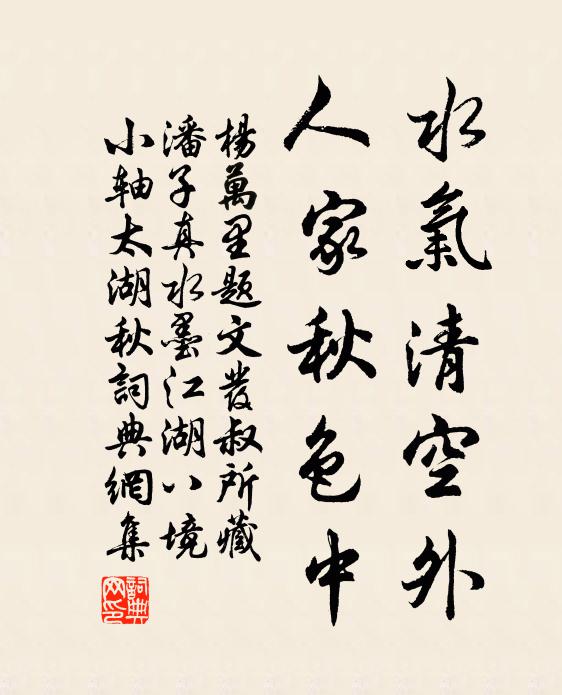 水氣清空外
人家秋色中
楊萬里题文發叔所藏
潘子真水墨江湖八境
小轴太湖秋詞典網集
詞典網印